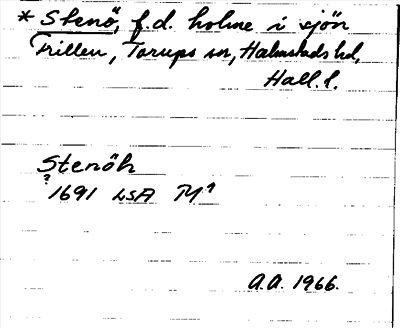 * Stenö, f.d. holme i sjön
Trillen, Tarups sn, Halmstads hd,
Hall. l.
Stenöh
? 1691 LSA
A.A. 1966.